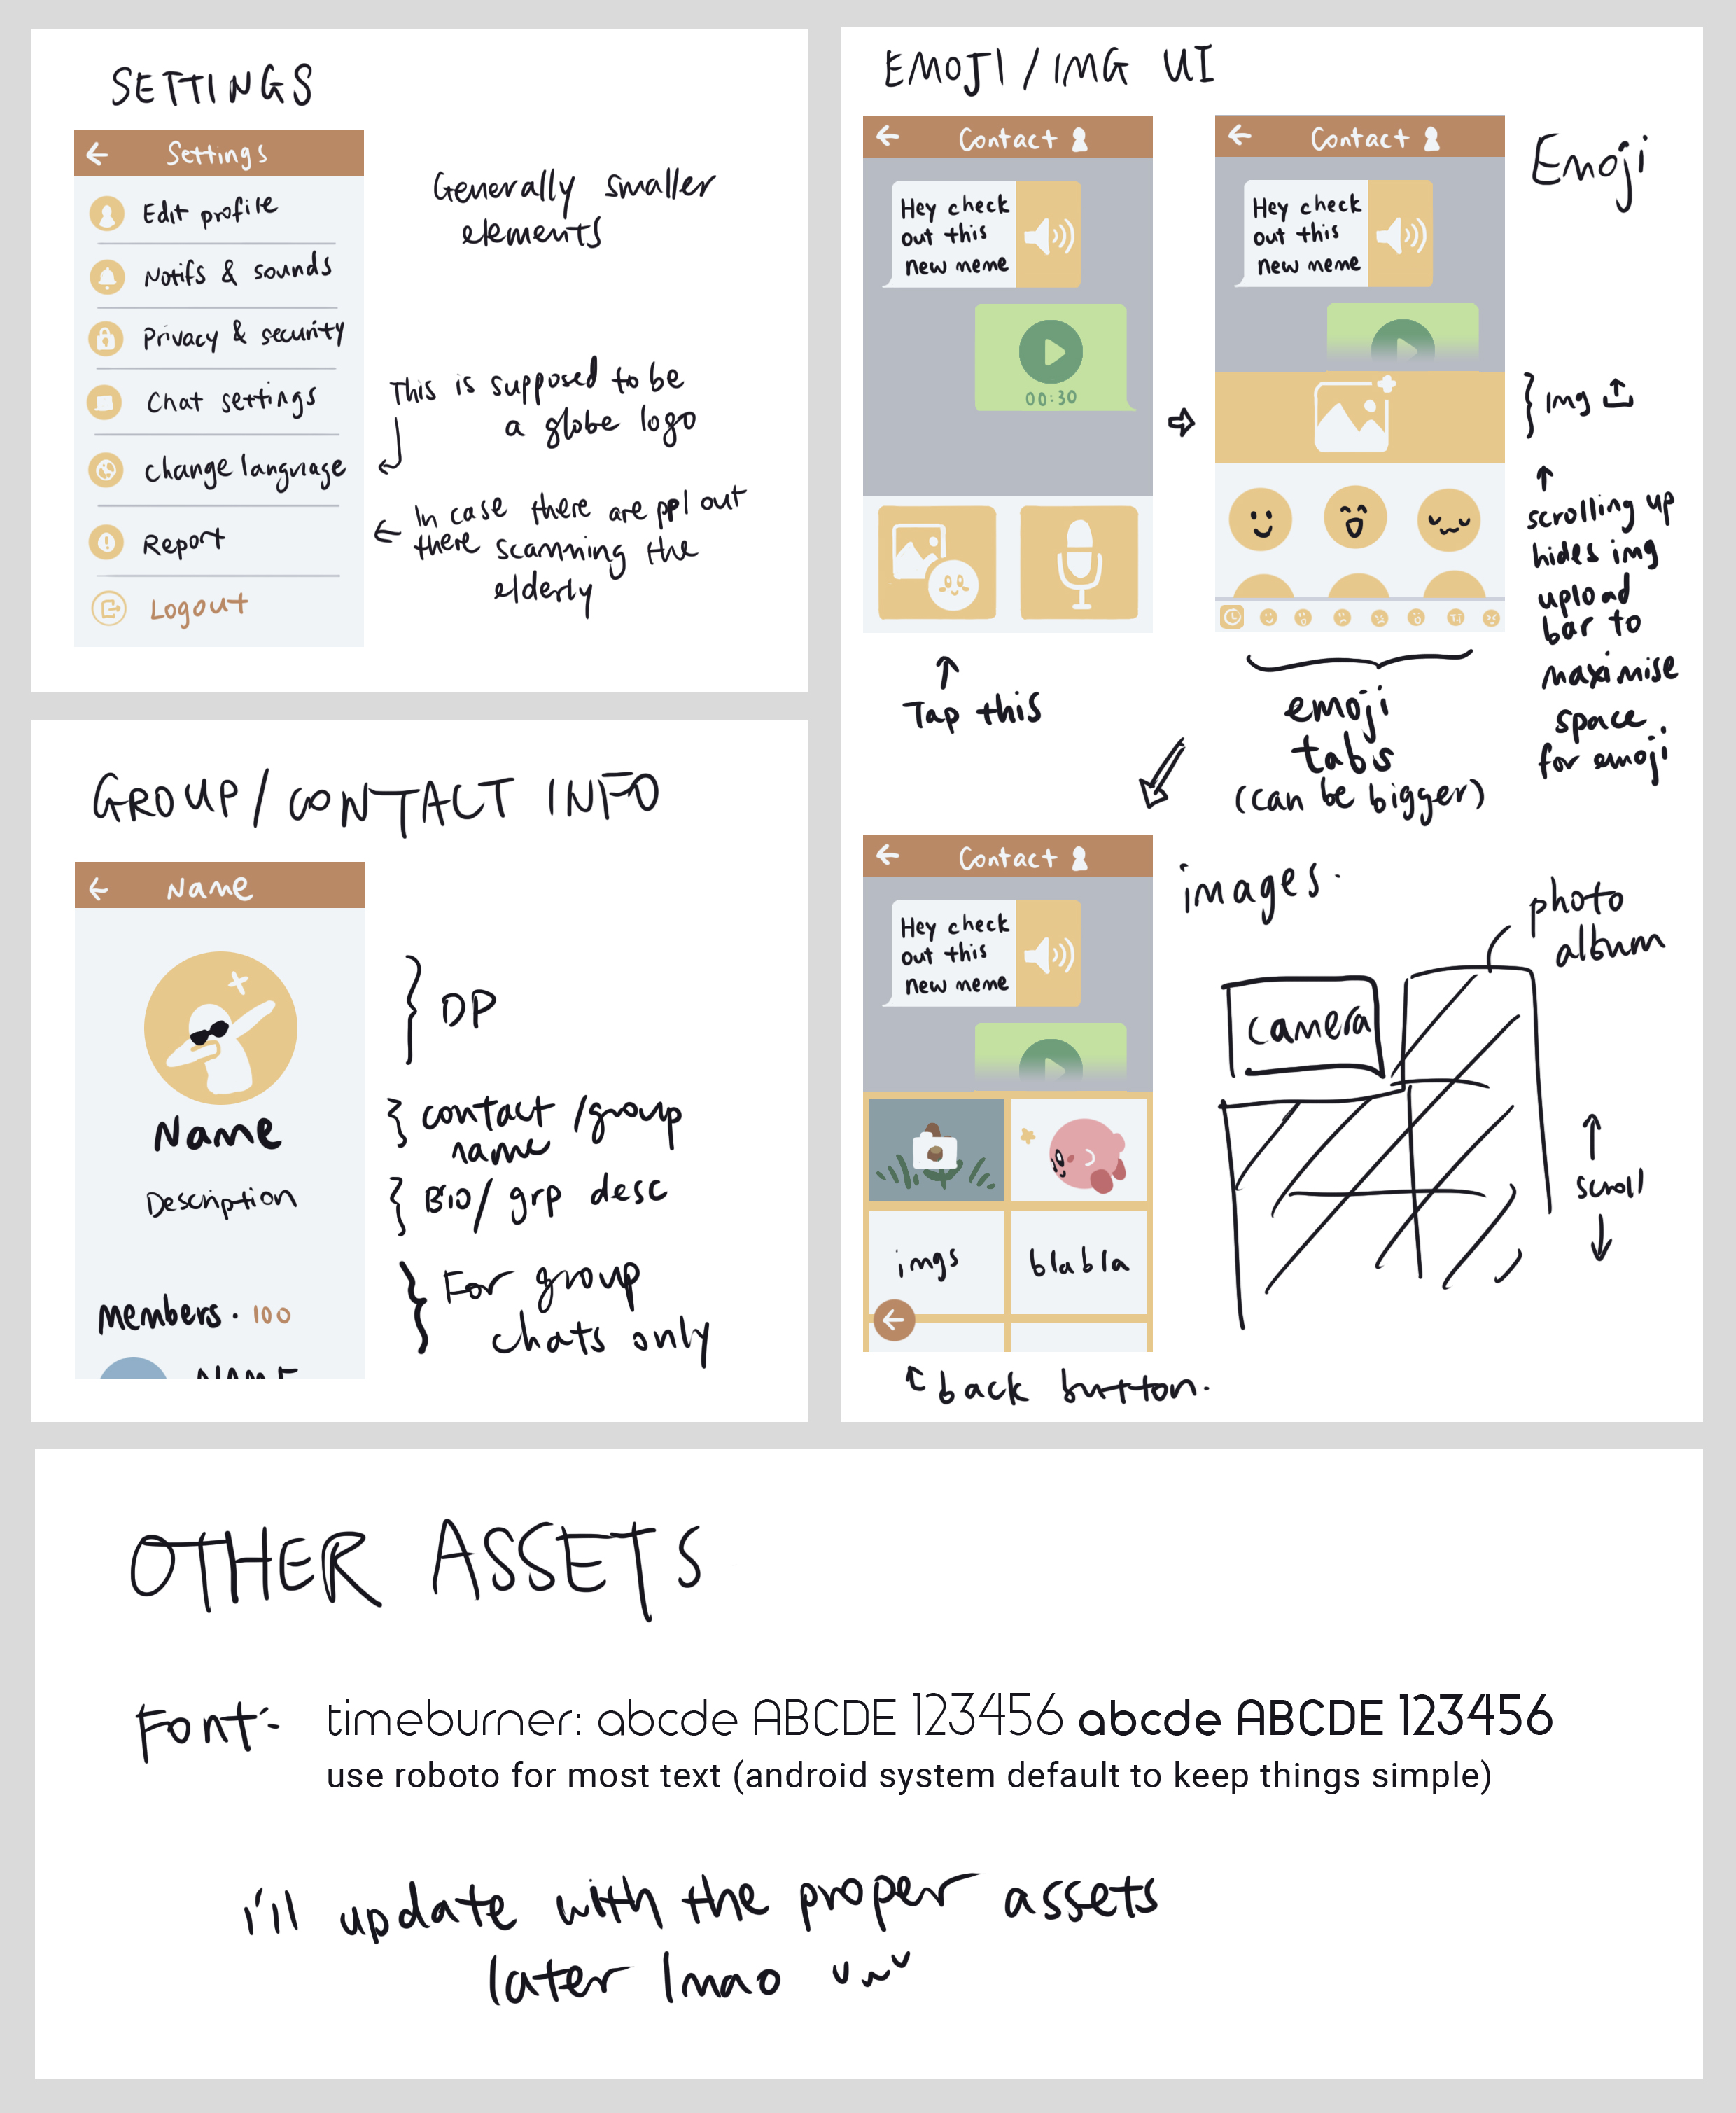 SETTINGS
Settings
Edit profile
Notifs & sounds
Privacy & security
Chat settings
Change language
Report
Logout
Generally smaller
elements
This is supposed to be
a globe logo
In case there are ppl out
there scamming the
elderly
GROUP/CONTACT INFO
Name
Name
Description
Members · 100
NAME
DP
contact/group
name
Bio/grp desc
For group
chats only
EMOJI/IMG UI
Contact
Hey check
out this
new meme
00:30
Tap this
Contact
Hey check
out this
new meme
Emoji
Img
scrolling up
hides img
upload
bar to
maximise
space
for emoji
emoji
tabs
(can be bigger)
Contact
Hey check
out this
new meme
imgs
blabla
back button.
images.
photo
album
camera
scroll
OTHER ASSETS
Font:
timeburner: abcde ABCDE 123456 abcde ABCDE 123456
use roboto for most text (android system default to keep things simple)
i'll update with the proper assets
later lmao